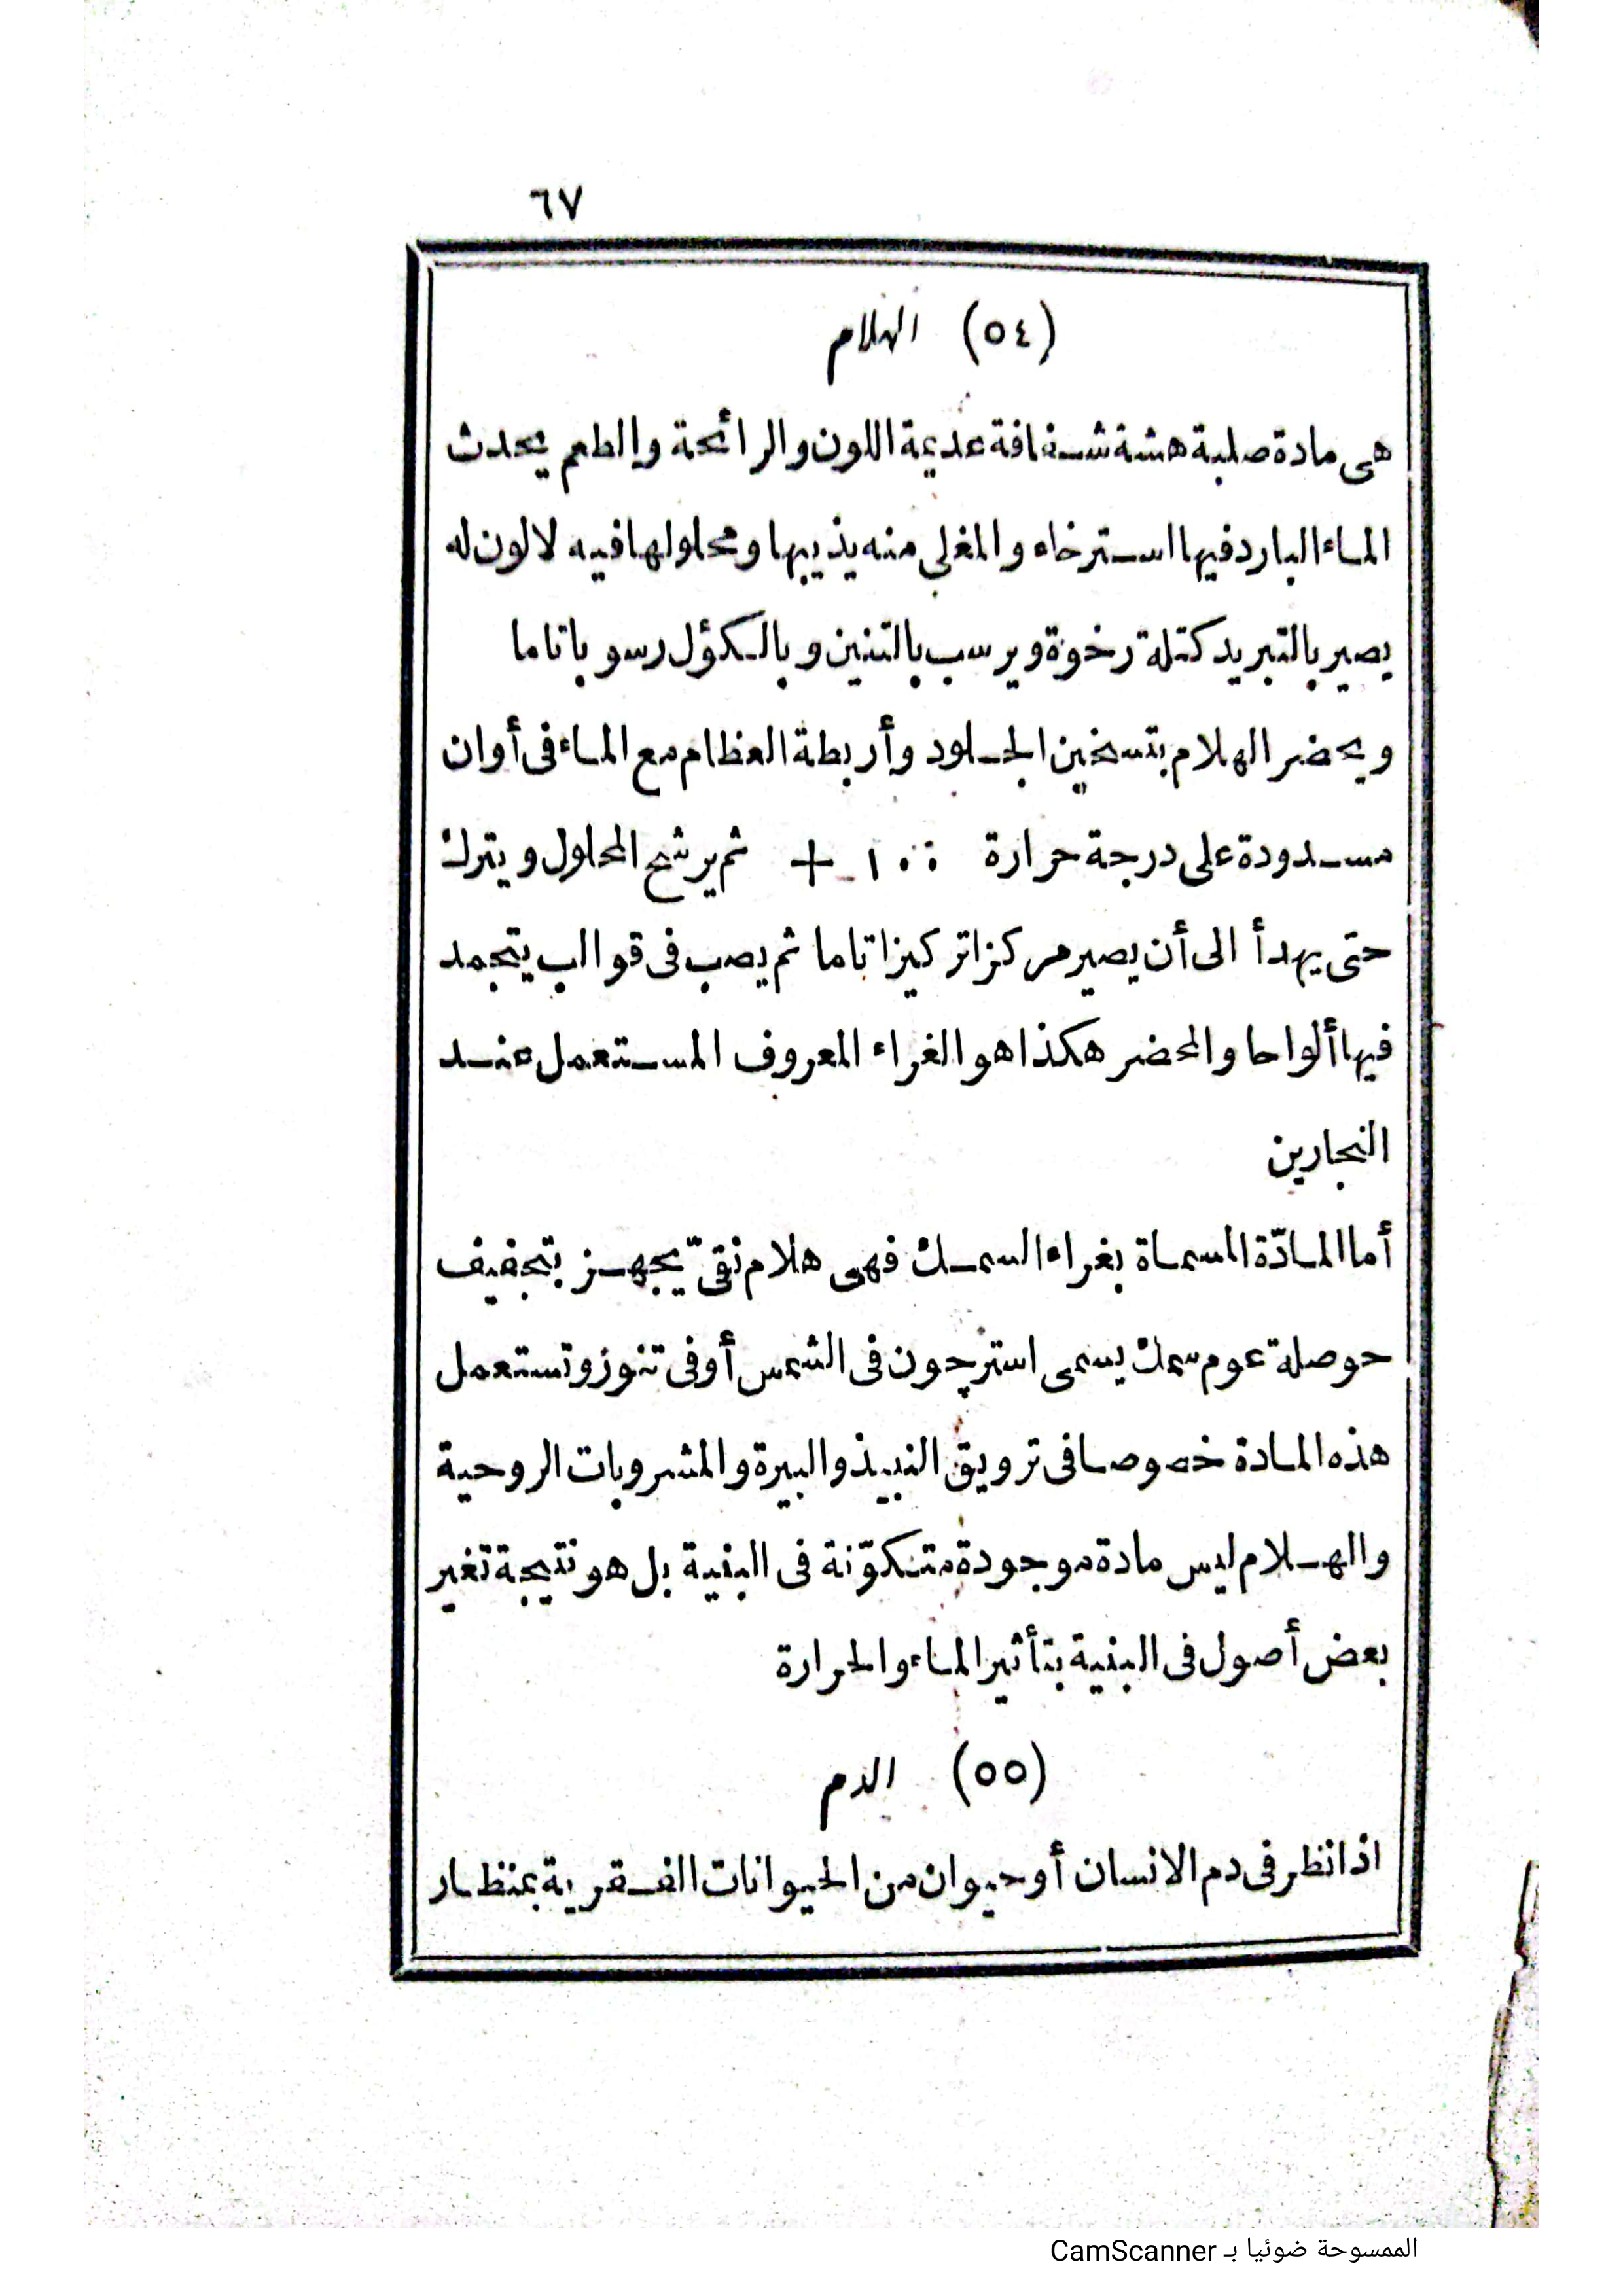 ٦٧
(٥٤) الهلام
هى مادة صلبة هشة شفافة عديمة اللون والرائحة والطعم يحدث
الماء البارد فيها استرخاء والمغلى منه يذيبها ومحلولها فيه لا لون له
يصير بالتبريد كتلة رخوة ويرسب بالتنين وبالكؤل رسوبا تاما
ويحضر الهلام بتسخين الجلود وأربطة العظام مع الماء فى أوان
مسدودة على درجة حرارة ١٠٠ + ثم يرشح المحلول ويترك
حتى يهدأ الى أن يصير مركزا تركيزا تاما ثم يصب فى قوالب يتجمد
فيها ألواحا والمحضر هكذا هو الغراء المعروف المستعمل عند
النجارين
أما المادّة المسماة بغراء السمك فهى هلام نقىّ يجهز بتجفيف
حوصلة عوم سمك يسمى استرجون فى الشمس أو فى تنوز وتستعمل
هذه المادة خصوصا فى ترويق النبيذ والبيرة والمشروبات الروحية
والهلام ليس مادة موجودة متكوّنة فى البنية بل هو نتيجة تغير
بعض أصول فى البنية بتأثير الماء والحرارة
(٥٥) الدم
اذا نظر فى دم الانسان أو حيوان من الحيوانات الفقرية بمنظار
الممسوحة ضوئيا بـ CamScanner